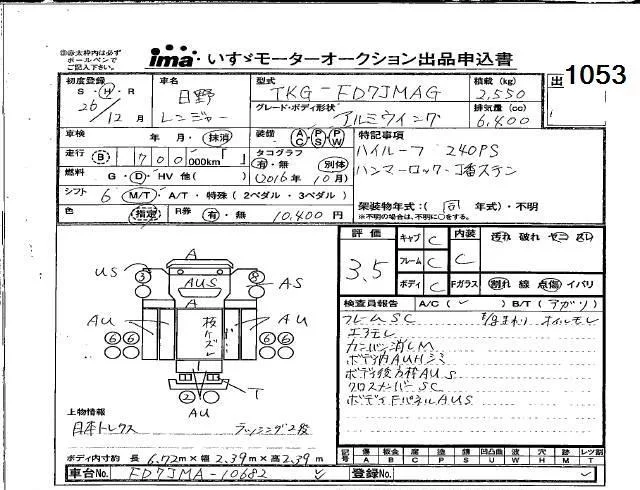 ㊟※太枠内は必ず
ボールペンで
ご記入下さい。
ima・いすゞモーターオークション出品申込書
出 1053
初度登録 S・H・R 26年 12月
車名 日野 レンジャー
型式 TKG-FD7JMAG
積載 (kg) 2,550
グレード・ボディ形状 アルミウイング
排気量 (cc) 6,400
車検 年・月・抹消
装備 AC PS PW
特記事項
走行 (B) 700 000km
タコグラフ 有・無 別体
ハイルーフ 240PS
燃料 G・D・HV 他( )
(2016年 10月)
ハンマーロック・丁番ステン
シフト 6 M/T・A/T・特殊(2ペダル・3ペダル)
色 指定 R券 有・無 10,400円
架装物年式:( 同 年式)・不明
※不明の場合は、不明に○をする。
評価 3.5
キャブ C
内装 C
汚れ 破れ ヤニ
フレーム C
ボディ C
Fガラス 割れ 線 点傷 イバリ
検査員報告 A/C( ✓ ) B/T(エアガリ)
フレームSC オイルモレ
エアモレ
カンバン消しM
ボディ内AUHシミ
ボディ後方枠AUS
クロスメンバーSC
ボディFパネルAUS
A
A
US 3 8 AS
AUS
AU AU
A
6 6 6 6
T
2
AU
上物情報
日本トレクス ラッシング2段
ボディ内寸約 長 6.72m×幅 2.39m×高 2.39m
記号 傷 A 板金 B 腐 C 塗 P 錆 S 凹凸曲 U 波 W 穴 H 跡 M レツ割 T
車台No. FD7JMA-10682 ✓
登録No.